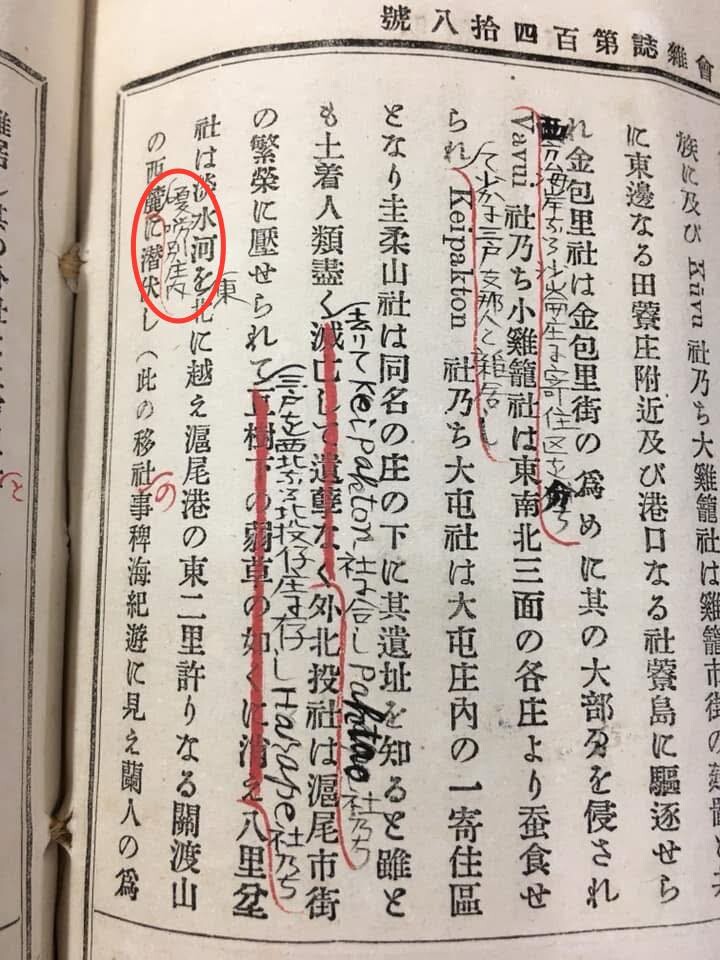 會雜誌第百四拾八號
族に及び Kávu 社乃ち大雞籠社は雞籠市街の
に東邊なる田藔庄附近及び港口なる社藔島に驅逐せら
れ金包里社は金包里街の爲めに其の大部分を侵され
西方海岸なる沙崙庄に寄住区を分ち
Vavui 社乃ち小雞籠社は東南北三面の各庄より蚕食せ
三戸支那人と雜居し
られ Keipakton 社乃ち大屯社は大屯庄內の一寄住區
となり圭柔山社は同名の庄の下に其遺址を知ると雖と
去りて Keipakton 社に合し Paktao 社乃ち
も土着人類盡く滅亡して遺孽なく外北投社は滬尾市街
三戸を西北なる北投仔庄に存し Harape 社乃ち
の繁榮に壓せられて樹下の草の如くに消え八里坌
東
社は淡水河を北に越え滬尾港の東二里許りなる關渡山
庄内
の西麓に潛伏し（此の移社事稗海紀遊に見え蘭人の爲
の
と